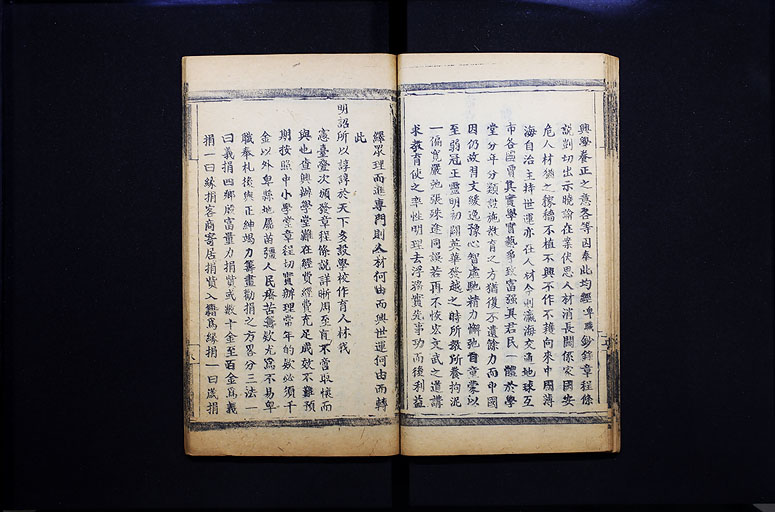 興學養正之意各等因奉此均經卑職鈔錄章程條
說剴切出示曉諭在案伏思人材消長關係家國安
危人材猶之稼穡不植不興不作不穫向來中國薄
海自治主持世運亦仕人材今則瀛海交通地球互
市各國買其實學實藝爭致富强其君民一體於學
堂分年分類設施教育之方猶復不遺餘力而中國
因仍故用文綾逸豫心智慮馳精力懈弛自童蒙以
至弱冠正靈明初闢英華發越之時所教所養拘泥
一偏寬嚴弛張殊途同誤若再不恢宏文武之道講
求教育使之率性明理去浮務實先事功而後利益
繹眾理而進專門則人材何由而興世運何由而轉
此
明詔所以諄諄於天下多設學校作育人材我
憲臺疊次頒發章程條說詳晰周至責不啻取懷而
與也查興辦學堂難在經費經費充足成效不難預
期按照中小學堂章程切實辦理常年的欵必須千
金以外卑縣地屬苗疆人民瘠苦籌欵尤爲不易卑
職奉札後與正紳竭力籌畫勸捐之方畧分三法一
曰義捐四鄉殷富量力捐貲或數十金至百金爲義
捐一曰緣捐客商寄居捐貲入籍爲緣捐一曰歲捐